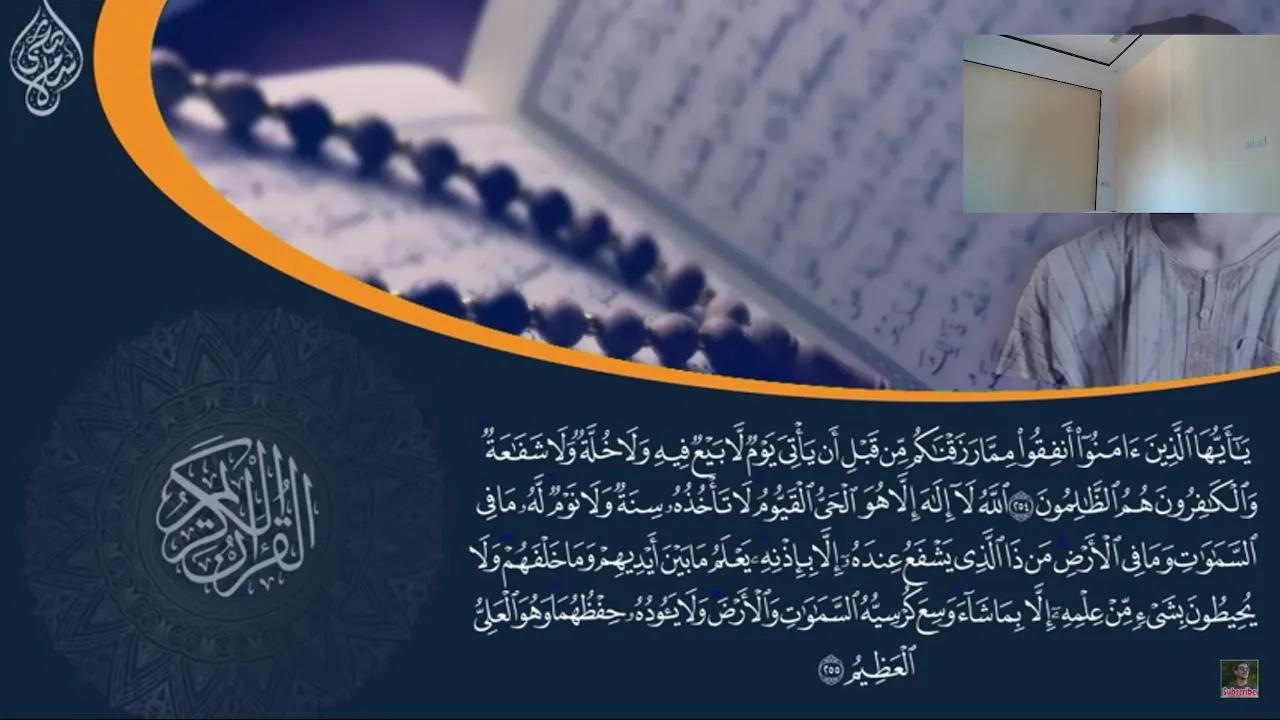 يَٰٓأَيُّهَا ٱلَّذِينَ ءَامَنُوٓا۟ أَنفِقُوا۟ مِمَّا رَزَقْنَٰكُم مِّن قَبْلِ أَن يَأْتِىَ يَوْمٌ لَّا بَيْعٌ فِيهِ وَلَا خُلَّةٌ وَلَا شَفَٰعَةٌ
وَٱلْكَٰفِرُونَ هُمُ ٱلظَّٰلِمُونَ ٢٥٤ ٱللَّهُ لَآ إِلَٰهَ إِلَّا هُوَ ٱلْحَىُّ ٱلْقَيُّومُ لَا تَأْخُذُهُۥ سِنَةٌ وَلَا نَوْمٌ لَّهُۥ مَا فِى
ٱلسَّمَٰوَٰتِ وَمَا فِى ٱلْأَرْضِ مَن ذَا ٱلَّذِى يَشْفَعُ عِندَهُۥٓ إِلَّا بِإِذْنِهِۦ يَعْلَمُ مَا بَيْنَ أَيْدِيهِمْ وَمَا خَلْفَهُمْ وَلَا
يُحِيطُونَ بِشَىْءٍ مِّنْ عِلْمِهِۦٓ إِلَّا بِمَا شَآءَ وَسِعَ كُرْسِيُّهُ ٱلسَّمَٰوَٰتِ وَٱلْأَرْضَ وَلَا يَـُٔودُهُۥ حِفْظُهُمَا وَهُوَ ٱلْعَلِىُّ
ٱلْعَظِيمُ ٢٥٥
القرآن الكريم
Subscribe